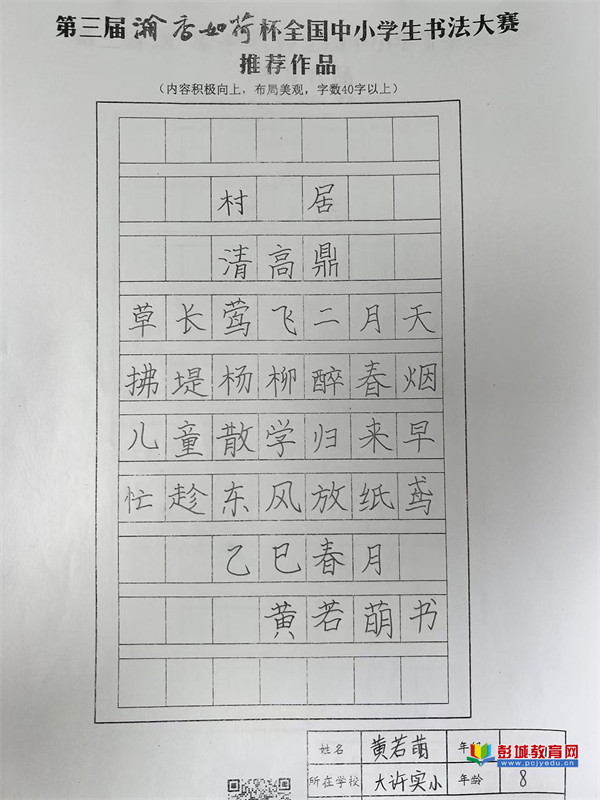 第三届瀚香如荷杯全国中小学生书法大赛
推荐作品
(内容积极向上，布局美观，字数40字以上)
村居
清高鼎
草长莺飞二月天
拂堤杨柳醉春烟
儿童散学归来早
忙趁东风放纸鸢
乙巳春月
黄若萌书
姓名 黄若萌 年
所在学校 大许实小 年龄 8
彭城教育网
www.pcjyedu.cn